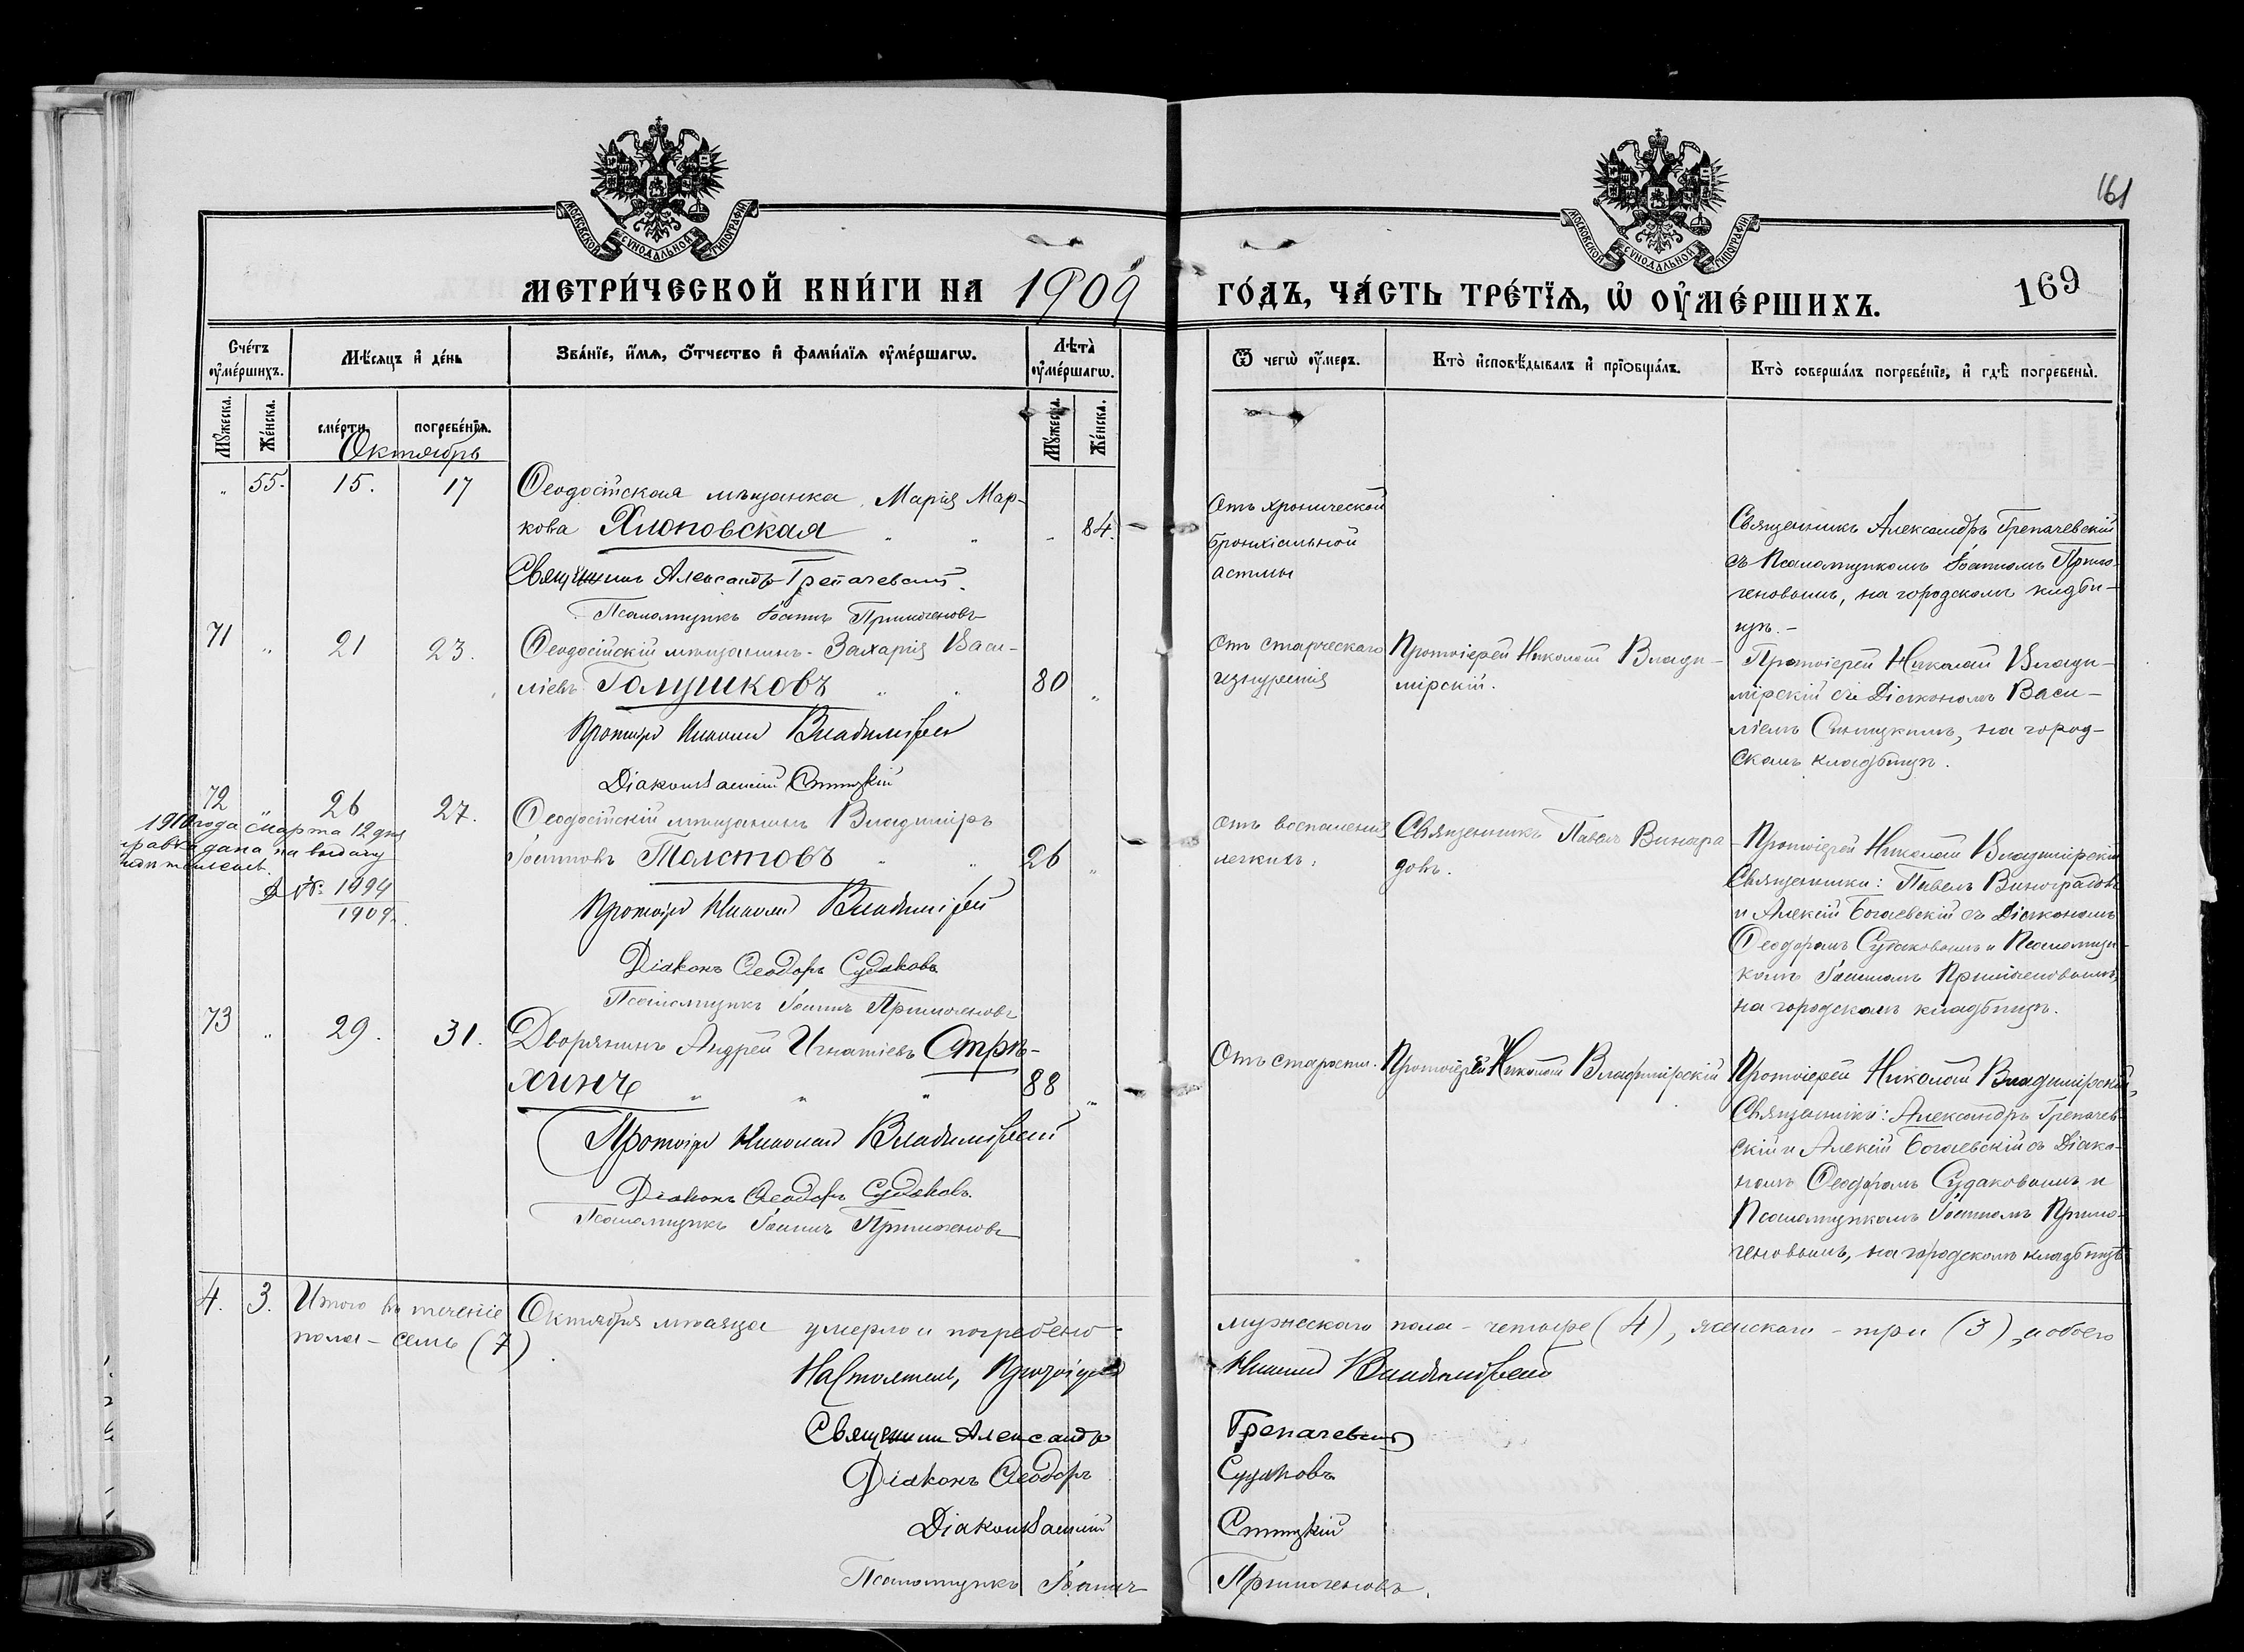 161
МОСКОВСКОЙ СѴНОДАЛЬНОЙ ТИПОГРАФІИ
МОСКОВСКОЙ СѴНОДАЛЬНОЙ ТИПОГРАФІИ
МЕТРИ́ЧЕСКОЙ КНИ́ГИ НА 1909 ГО́ДЪ, ЧА́СТЬ ТРЕ́ТІѦ, Ѡ҆ ОУ҆МЕ́РШИХЪ.
169
Сче́тъ оу҆ме́ршихъ.
Мѣ́сяцъ и҆ де́нь
Зва́нїе, и҆́мѧ, ѻ҆́тчество и҆ фами́лїѧ оу҆ме́ршагѡ.
Лѣ́та оу҆ме́ршагѡ.
Ѿ чегѡ̀ оу҆́меръ.
Кто̀ и҆сповѣ́дывалъ и҆ прїѻбща́лъ.
Кто̀ соверша́лъ погребе́нїе, и҆ гдѣ̀ погребены̀.
Мꙋ́жеска.
Же́нска.
сме́рти.
погребе́нїѧ.
Мꙋ́жеска.
Же́нска.
Октябрь
" 55. 15. 17
Ѳеодосійская мѣщанка, Марія Мар-
кова Хлоповская " " " 84.
Священникъ Александръ Грепачевскій.
Псаломщикъ Іоаннъ Примогеновъ
Отъ хронической
бронхіальной
астмы
Священникъ Александръ Грепачевскій
съ Псаломщикомъ Іоанномъ Примо-
геновымъ, на городскомъ кладби-
щѣ.-
71 " 21 23.
Ѳеодосійскій мѣщанинъ Захарія Васи-
ліевъ Голушковъ " " 80 "
Протоіерей Николай Владимірскій
Діаконъ Василій Синицкій
Отъ старческаго
изнуренія
Протоіерей Николай Влади-
мірскій.
Протоіерей Николай Влади-
мірскій съ Діакономъ Васи-
ліемъ Синицкимъ, на город-
скомъ кладбищѣ.
72 " 26 27.
1910 года Марта 12 дня
дана на выдачу
№: 1094
1909.
Ѳеодосійскій мѣщанинъ Владиміръ
Іоанновъ Толстовъ " " 26 "
Протоіерей Николай Владимірскій
Діаконъ Ѳеодоръ Судаковъ
Псаломщикъ Іоаннъ Примогеновъ
Отъ воспаленія
легкихъ.
Священникъ Павелъ Виногра-
довъ.
Протоіерей Николай Владимірскій
Священники: Павелъ Виноградовъ
и Алексій Богаевскій съ Діакономъ
Ѳеодоромъ Судаковымъ и Псаломщи-
комъ Іоанномъ Примогеновымъ,
на городскомъ кладбищѣ.
73 " 29. 31.
Дворянинъ Андрей Игнатіевъ Стрѣ-
хинъ " " " 88 "
Протоіерей Николай Владимірскій
Діаконъ Ѳеодоръ Судаковъ.
Псаломщикъ Іоаннъ Примогеновъ
Отъ старости.
Протоіерей Николай Владимірскій
Протоіерей Николай Владимірскій,
Священники: Александръ Грепачев-
скій и Алексій Богаевскій съ Діако-
номъ Ѳеодоромъ Судаковымъ и
Псаломщикомъ Іоанномъ Примо-
геновымъ, на городскомъ кладбищѣ
4. 3. Итого въ теченіе Октября мѣсяца умерло и погребено - мужескаго пола - четыре (4), женскаго - три (3), а обоего
пола - семь (7).
Настоятель, Протоіерей Николай Владимірскій
Священникъ Александръ Грепачевскій
Діаконъ Ѳеодоръ Судаковъ
Діаконъ Василій Синицкій
Псаломщикъ Іоаннъ Примогеновъ.